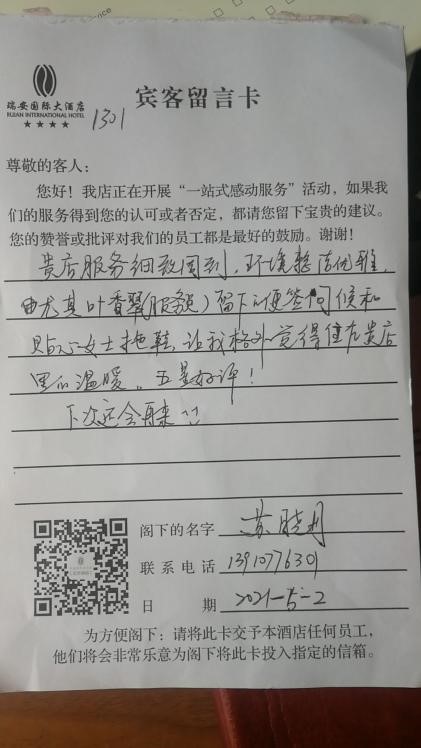 瑞安国际大酒店
RUIAN INTERNATIONAL HOTEL
★★★★
1301
宾客留言卡
尊敬的客人：
您好！我店正在开展“一站式感动服务”活动，如果我
们的服务得到您的认可或者否定，都请您留下宝贵的建议。
您的赞誉或批评对我们的员工都是最好的鼓励。谢谢！
贵店服务细致周到，环境整洁优雅，
尤其叶香翠（服务员）留下的便签问候和
贴心女士拖鞋，让我格外觉得住在贵店
里的温暖。五星好评！
下次还会再来
阁下的名字 苏晓利
联系电话 13910776301
日期 2021-5-2
为方便阁下：请将此卡交予本酒店任何员工，
他们将会非常乐意为阁下将此卡投入指定的信箱。